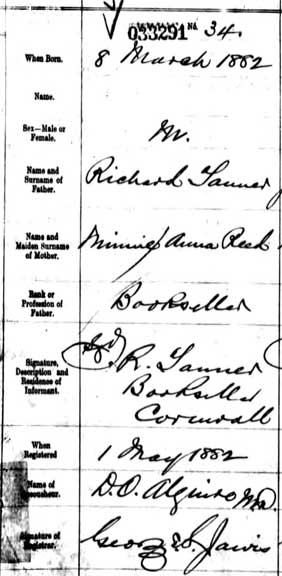 033291 No 34.
When Born.
8 March 1882
Name.
Sex—Male or
Female.
M.
Name and
Surname of
Father.
Richard Tanner
Name and
Maiden Surname
of Mother.
Anna
Rank or
Profession of
Father.
Bookseller
Signature,
Description and
Residence of
Informant.
R. Tanner
Bookseller
Cornwall
When
Registered
1 May 1882
Name of
Accoucheur.
D.O. MD.
Signature of
Registrar.